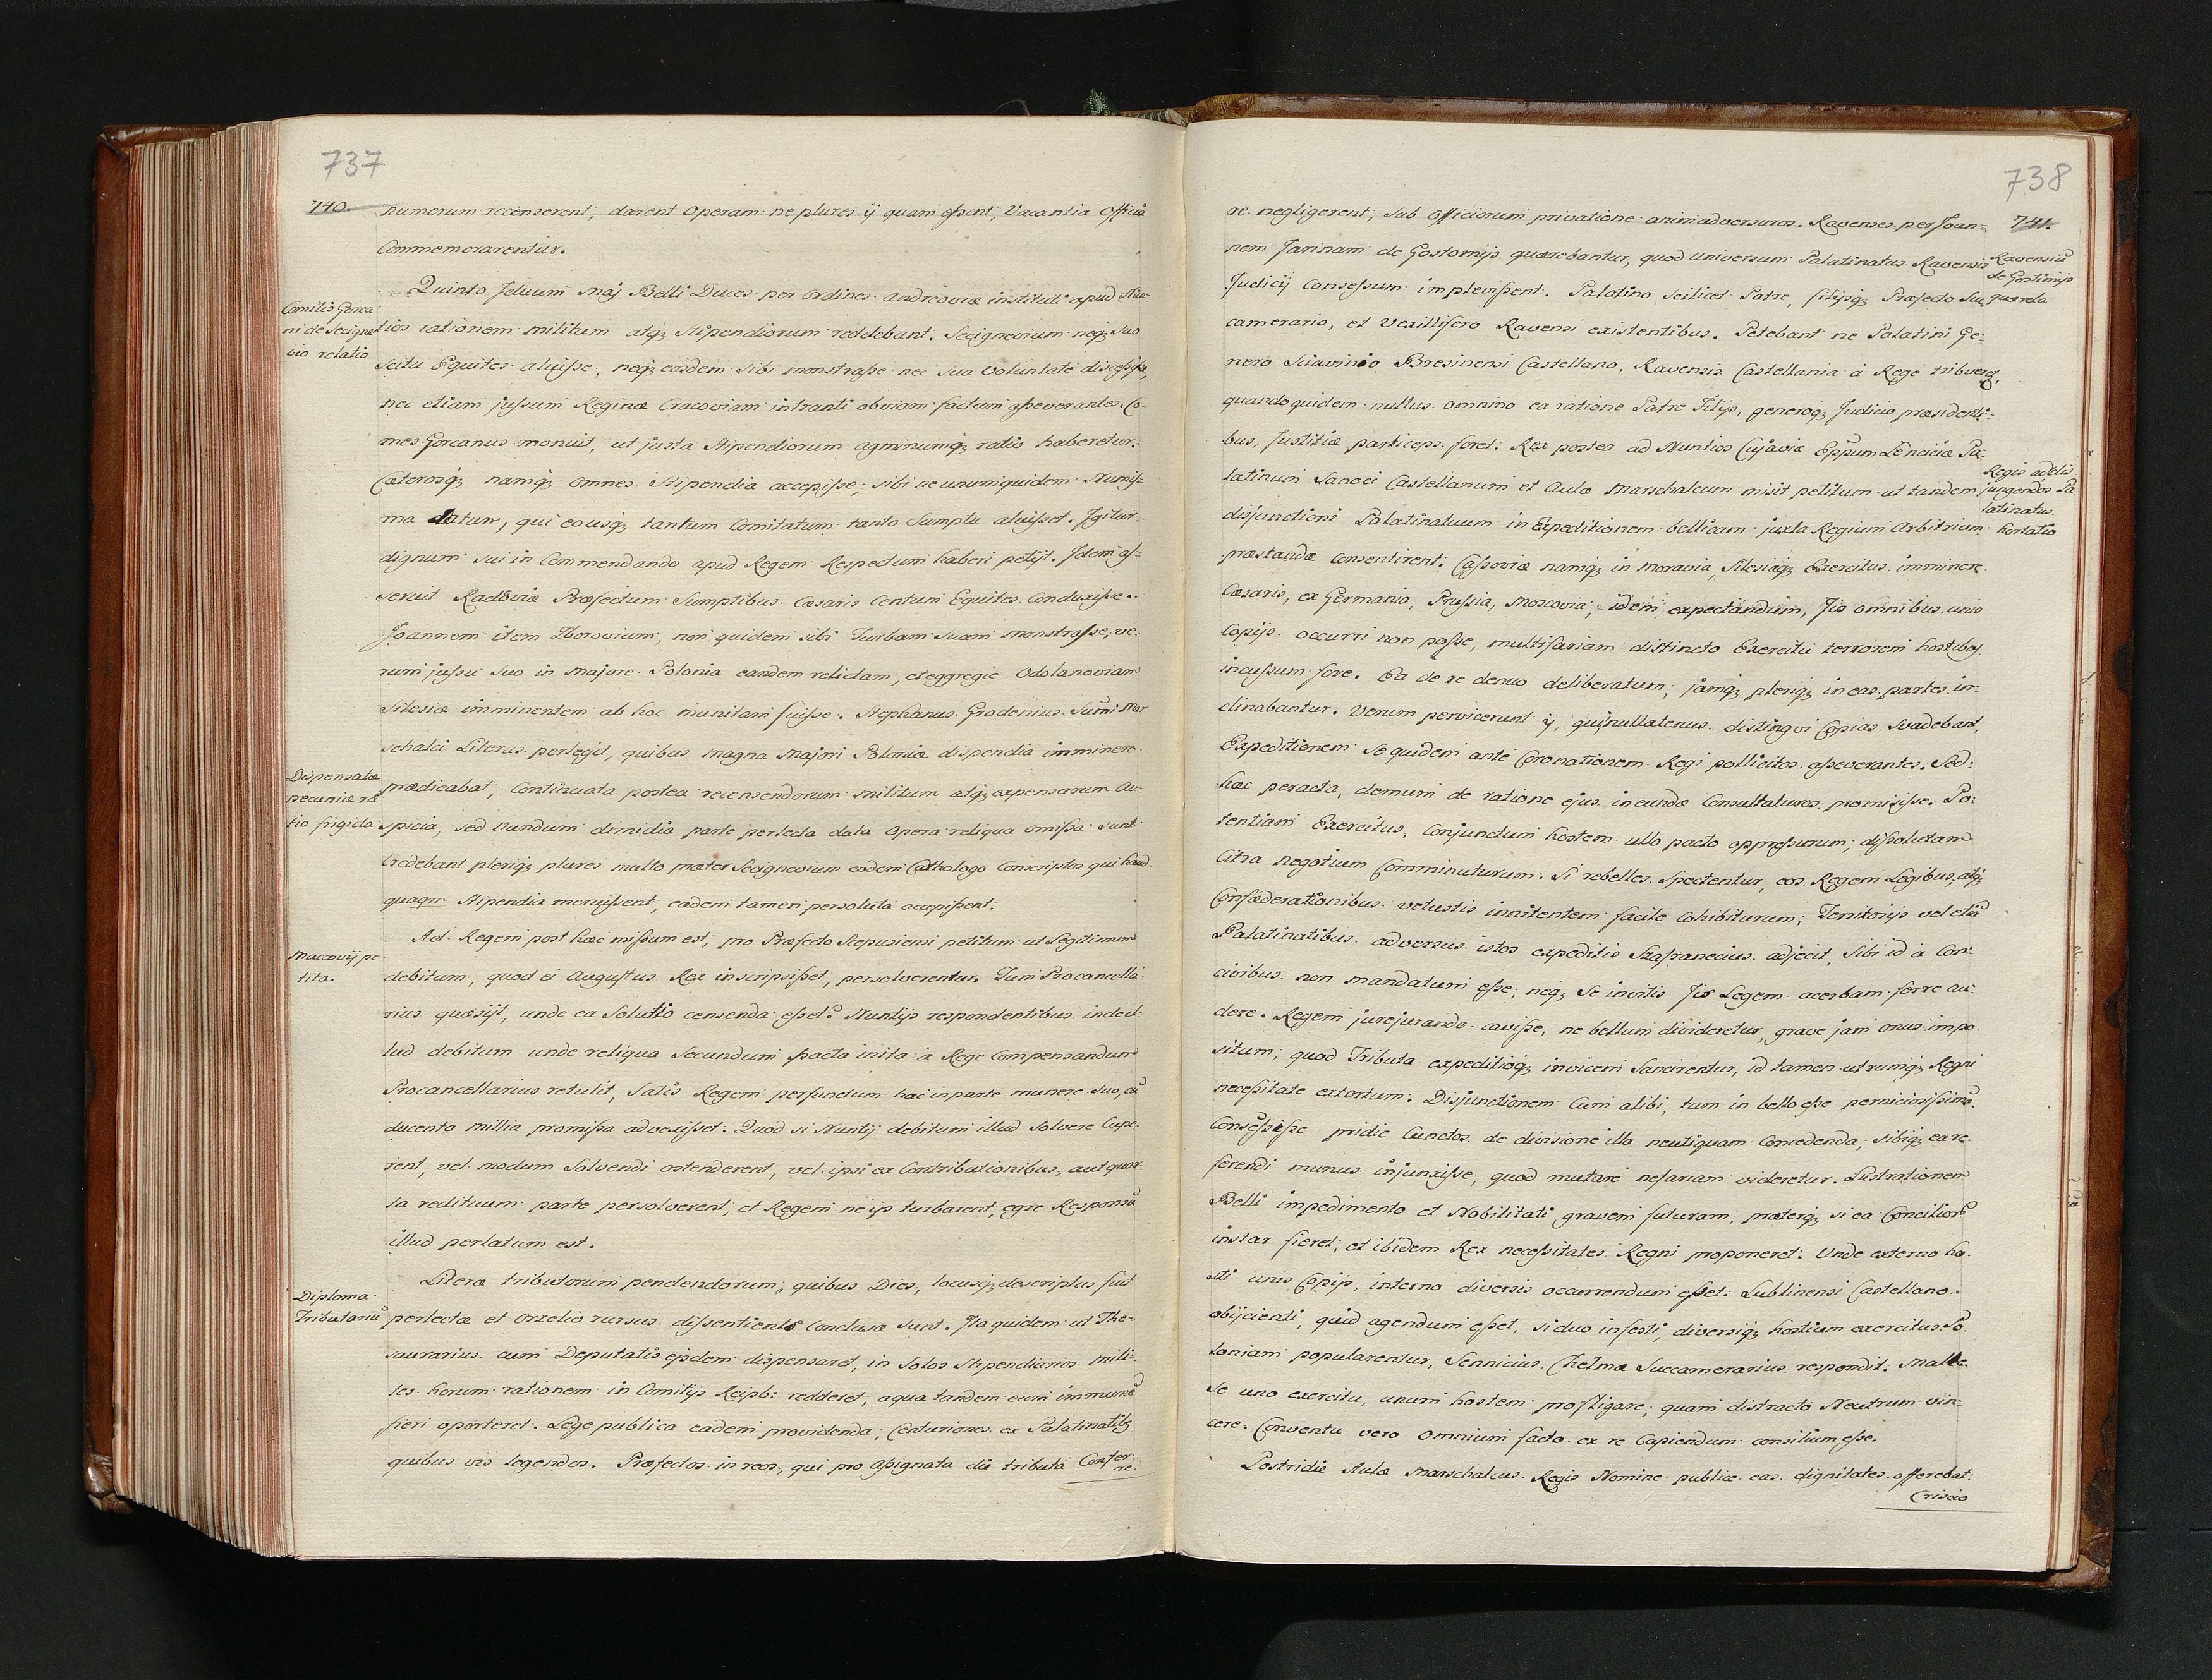 737
740
numerum recenserent, darent operam ne plures ij quam essent, Vacantia Officia
Commemorarentur.
Comitis Gorca
ni de Secigne
vio relatio
Quinto Iduum Maj Belli Duces per Ordines Andreoviæ instituti apud Nun-
tios rationem militum atq; Stipendiorum reddebant. Secignevium neq; suo
scitu Equites aluisse, neq; eosdem sibi monstrasse nec sua Voluntate discessisse,
nec etiam jussum Reginæ Cracoviam intranti obviam factum asseverantes. Co-
mes Gorcanus monuit, ut justa Stipendiorum agminumq; ratio haberetur.
Cæterosq; namq; omnes Stipendia accepisse; sibi ne unum quidem Numis-
ma datum, qui eousq; tantum Comitatum tanto Sumptu aluisset. Igitur
dignum sui in Commendando apud Regem Respectum haberi petijt. Idem as-
seruit Radoviæ Præfectum Sumptibus Cæsaris Centum Equites Conduxisse.
Joannem item Zborovium, non quidem sibi Turbam Suam monstrasse, ve-
rum jussu suo in Majore Polonia eandem relictam, et eggregie Odolanoviam
Silesiæ imminentem ab hoc munitam fuisse. Stephanus Grodenius Sumi Mar
schalci Literas perlegit, quibus magna Majori Poloniæ dispendia imminere
Dispensatæ
pecuniæ ra
tio frigida
prædicabat, Continuata postea recensendorum militum atq; expensarum Au-
spicia, sed Nundum dimidia parte perlecta data Opera reliqua omissa sunt
Credebant pleriq; plures multo præter Secignevium eodem Cathologo Conscriptos qui haud
quaqm Stipendia meruissent, eadem tamen persoluta accepissent.
Maccovij pe
tita.
Ad Regem post hæc missum est, pro Præfecto Scepusiensi petitum ut Legitimum
debitum, quod ei Augustus Rex inscripsisset, persolverentur. Tum Procancella
rius quæsijt, unde ea Solutio censenda esset? Nuntijs respondentibus inde il-
lud debitum unde reliqua Secundum pacta inita à Rege Compensandum
Procancellarius retulit, Satis Regem perfunctum hac in parte munere suo, cū
ducenta millia promissa advexisset. Quod si Nuntij debitum illud Solvere Cupe
rent, vel modum Solvendi ostenderent, vel ipsi ex Contributionibus, aut quar-
ta redituum parte persolverent, et Regem ne ijs turbarent, egre Responsū
illud perlatum est.
Diploma
Tributariū
Literæ tributorum pendendorum, quibus Dies, locusq; descriptus fuit
perlectæ et Orzelio rursus dissentiente Conclusæ Sunt. Ita quidem ut The-
saurarius cum Deputatis ejsdem dispensaret, in Solos Stipendiarios mili-
tes horum rationem in Comitijs Reipb: redderet, a qua tandem eum immunē
fieri oporteret. Lege publica eadem providenda, Centuriones ex Palatinatibꝫ
quibus vis legendos. Præfectos in reos, qui pro assignata die tributa Confer
re
738
741.
re negligerent, Sub Officiorum privatione animadversuros. Ravenses per Joan-
nem Jarinam de Gostomijs quærebantur, quod Universum Palatinatus Ravensis
Ravensiū
de Gostimijs
quærela
Judicij Consessum implevissent. Palatino Scilicet Patre, filijsq; Præfecto Suc
camerario, et Vexillifero Ravensi existentibus. Petebant ne Palatini Ge-
nero Sciavinio Bresinensi Castellano, Ravensis Castellania à Rege tribueret,
quandoquidem nullus omnino ea ratione Patre Filijs, generoq; Judicio præsidenti-
bus, Justitiæ particeps foret. Rex postea ad Nuntios Cujaviæ Eppum Lenciciæ Pa-
latinum Sanoci Castellanum et Aulæ Marschalcum misit petitum ut tandem
Regis ad dis
jungendos Pa
latinatus
hortatio
disjunctioni Palatinatuum in Expeditionem bellicam juxta Regium Arbitrium
præstandæ consentirent. Cassoviæ namq; in Moravia, Silesiaq; Exercitus imminere
Cæsaris, ex Germania, Prussia, Moscovia, idem expectandum, Jis omnibus unis
Copijs occurri non posse, multifariam distincto Exercitu terrorem hostibus
incussum fore. Ea de re denuo deliberatum, jamq; pleriq; in eas partes in-
clinabantur. Verum pervicerunt ij, qui nullatenus distingvi Copias Svadebant,
Expeditionem Se quidem ante Coronationem Regi pollicitos asseverantes. Sed
hac peracta, demum de ratione ejus ineunda Consultaturos promisisse. Po-
tentiam Exercitus, Conjunctum hostem ullo pacto oppressurum, dissolutam
Citra negotium Comminuturum. Si rebelles Spectentur, eos Regem Legibus, atq;
Confæderationibus vetustis innitentem facile Cohibiturum, Territorijs vel etiā
Palatinatibus adversus istos expeditis Szafranecius adjecit, Sibi id à Con-
civibus non mandatum esse, neq; Se invitis Jis Legem acerbam ferre au-
dere. Regem jurejurando cavisse, ne bellum divideretur, grave jam onus impo
situm, quod Tributa expeditioq; invicem Sancirentur, id tamen utrumq; Regni
necessitate extortum. Disjunctionem Cum alibi, tum in bello esse perniciosissimā.
Consessisse pridie Cunctos de divisione illa neutiquam Concedenda, Sibiq; ea re
ferendi munus injunxisse, quod mutare nefariam videretur. Lustrationem
Belli impedimento et Nobilitati gravem futuram, præterq; si ea Conciliorū
instar fieret, et ibidem Rex necessitates Regni proponeret. Unde externo ho-
sti unis Copijs, interno diversis occurrendum esset. Lublinensi Castellano
objicienti, quid agendum esset, si duo infesti, diversiq; hostium exercitus Po
loniam popularentur, Sennicius Chelmæ Succamerarius respondit. Malle
Se uno exercitu, unum hostem profligare, quam distracto Neutrum vin-
cere. Conventu vero Omnium facto ex re Capiendum consilium esse.
Postridie Aulæ Marschalcus Regis Nomine publice eas dignitates offerebat.
Criscio